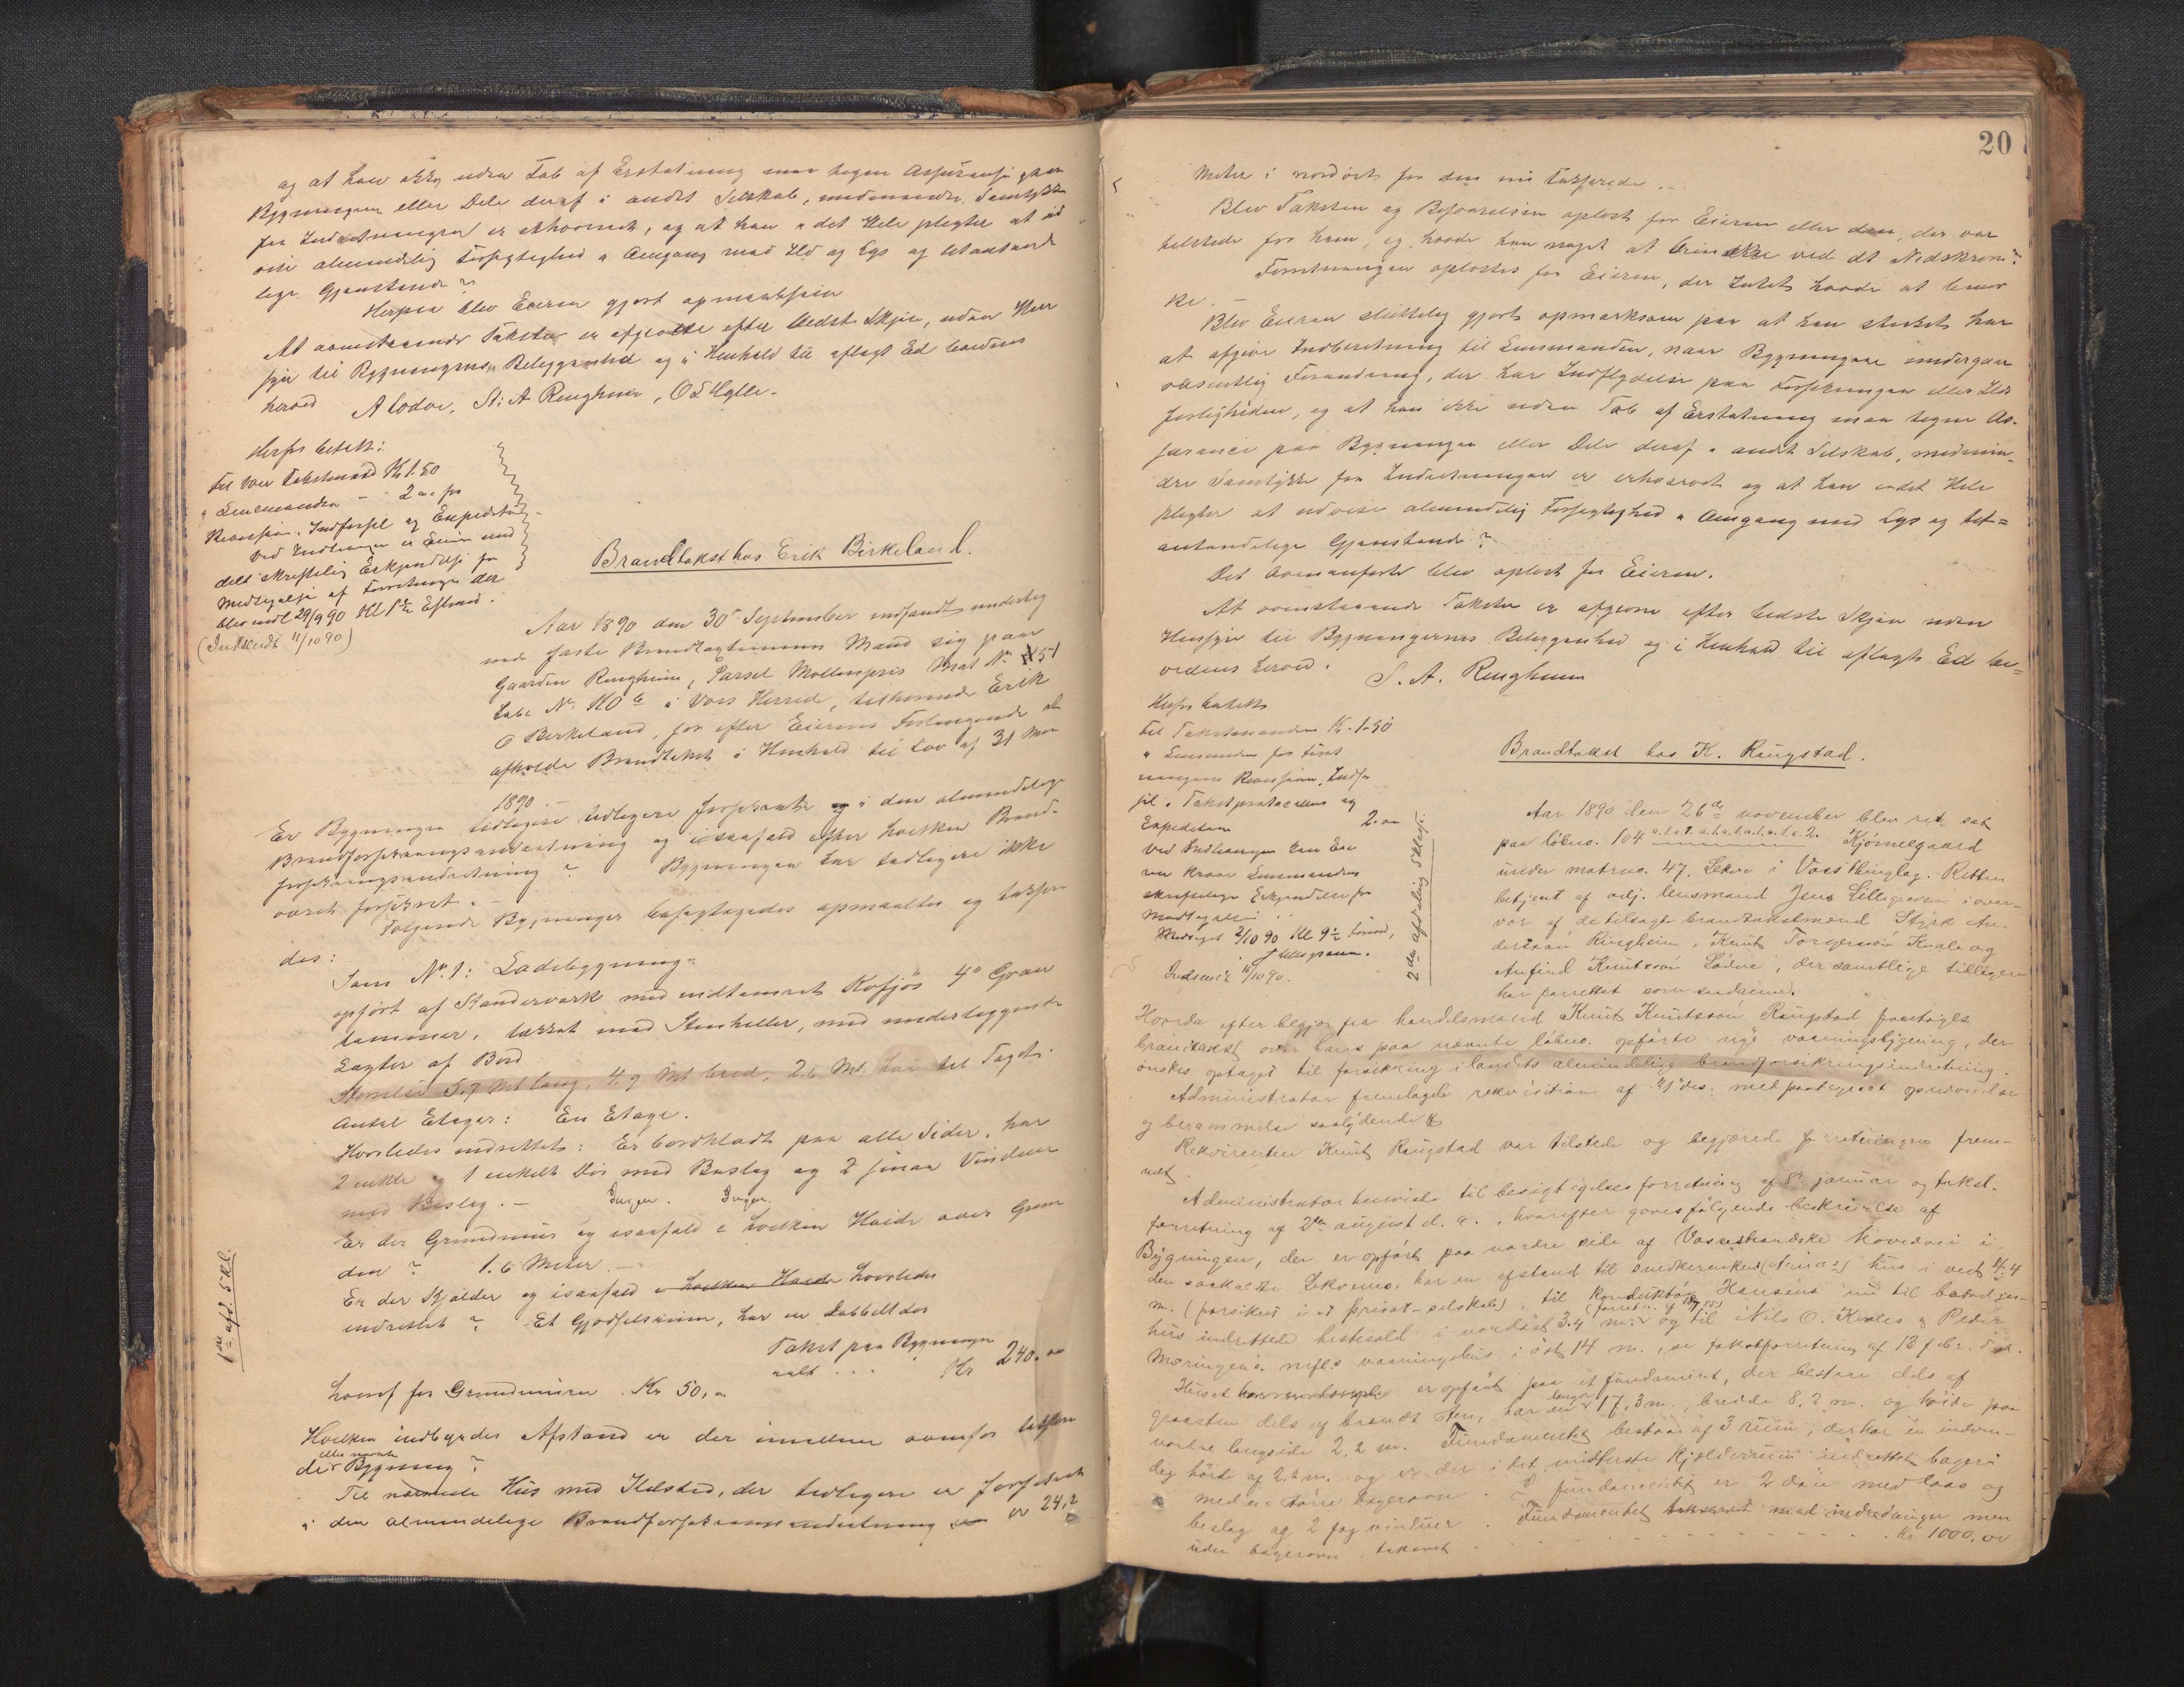 og at han ikke uden Tab af Erstatning maa tegne Assurance paa
Bygningen eller Dele deraf i andet Selskab, medmindre Samtykke
fra Indretningen er erhvervet, og at han i det Hele pligter at ud
vise almindelig Forsigtighed i Omgang med Ild og Lys og letantænde
lige Gjenstande?
Herpaa blev Eieren gjort opmærksom
At ovenstaaende Takster er afgivne efter bedste Skjøn, uden Hen
syn til Bygningens Beliggenhed og i Henhold til aflagt Ed bevidnes
herved A Lødve, St: A Ringheim, O L Hylle.
Herfor betalt:
til hver Takstmand Kr 1.50
" Lensmanden - 2.00 for
Reversion, Indførsel og Expedition
Ved Indleveringen er Eieren med
delt skriftlig Erkjendelse for
Modtagelse af Forretningen der
blev indl 29/9 90 Kl 1½ Eftmd.
(Indsendt 11/10 90)
Brandtakst hos Erik Birkeland.
Aar 1890 den 30te September indfandt underteg
nede faste Brandtaxtmann Mand sig paa
Gaarden Ringheim, Parsel Møllenspris Mat No 51
Løbe No 110 b i Voss Herred, tilhørende Erik
O Birkeland, for efter Eierens Forlangende at
afholde Brandtakst i Henhold til Lov af 31 Mai
1890.
Er Bygningen tidligere forsikret og i den almindelige
Brandforsikringsindretning og isaafald efter hvilken Brand-
forsikringsindretning? Bygningen har tidligere ikke
været forsikret.
Følgende Bygninger besigtigedes opmaaltes og takser
des:
Som No. 1: Ladebygning:
opført af Standerværk med indtømret Kofjøs 4" Gran
tømmer, tækket med Stenheller, med underliggende
Lægter af Bord
Størrelse 5.7 Mt lang, 4.9 Mt bred, 2.6 Mt. høi til Taget.
Antal Etager: En Etage.
Hvorledes indrettet: Er bordklædt paa alle Sider, har
2 enkle og 1 enkelt Dør med Beslag og 2 smaa Vinduer
med Beslag. - Ingen. Ingen.
Er der Grundmur og isaafald i hvilken Høide over Grun
den? 1.6 Meter. -
Er der Kjælder og isaafald i hvilken Høide hvorledes
indrettet? Et Gjødselrum, har en dobbelt dør
Takst paa Bygningen
ialt . . . Kr 240.00
hvoraf for Grundmuren . Kr 50,00
1ste afd. 5 Kl.
Hvilken indbyrdes Afstand er der imellem ovenfor takser
eller nævnte
de Bygning?
Til nærmeste Hus med Ildsted, der tidligere er forsikret
i den almindelige Brandforsikringsindretning er 24,2
20
Meter i nordøst for den nu taxerede.
Blev Taksten og Besvarelsen oplæst for Eieren eller den, der var
tilstede for ham, og havde han noget at erindre ved det Nedskrevne?
Forretningen oplæstes for Eieren, der Intet havde at bemær
ke. -
Blev Eieren skriftlig gjort opmærksom paa at han straks har
at afgive Indberetning til Lensmanden, naar Bygningene undergaar
væsentlig Forandring, der har Indflydelse paa Forsikringen eller Ilds
farligheden, og at han ikke uden Tab af Erstatning maa tegne As-
surance paa Bygningen eller Dele deraf i andet Selskab, medmin-
dre Samtykke fra Indretningen er erhvervet og at han i det Hele
pligter at udvise almindelig Forsigtighed i Omgang med Lys og let=
antændelige Gjenstande?
Det ovenanførte blev oplæst for Eieren.
At ovenstaaende Takster er afgivne efter bedste Skjøn uden
Hensyn til Bygningernes Beliggenhed og i Henhold til aflagt Ed be=
vidnes herved. S. A. Ringheim
Herfor betalt
til Takstmanden Kr. 1.50
" Lensmanden for Forret
ningens Reversion, Indfør
sel i Takstprotocollen og
Expedition 2.00
Ved Indleveringen har Eie
ren krævet Lensmandens
skriftelige Erkjendelse for
Modtagelsen
Modtaget 2/10 90 Kl 9½ Formd,
J Lillegraven.
Indsendt 11/10 90.
2den afdeling 5 Klasse.
Brandtakst hos K. Raugstad.
Aar 1890 den 26de november blev ret sat
paa løbno. 104 Kjønnegaard
under matrno. 47, Lekve i Voss thinglag. Retten
betjent af adj. lensmand Jens Lillegraven i over-
vær af de tilsagte brandtakstmænd Styrk An-
dersson Ringheim, Knut Torgersson Kvale og
Anfind Knutsson Lødve, der samtlige tidligere
har forrettet som saadanne.
Hvorda efter begjær fra handelsmand Knut Knutsson Raugstad foretages
brandtakst over hans paa nævnte løbno. opførte nye vaaningsbygning, der
ønskes optaget til forsikring i landets almindelige brandforsikringsindretning.
Administrator fremlagde rekvisition af 21 ds. med paategnet opnævnelse
og berammelse saalydende #
Rekvirenten Knut Raugstad var tilstede og begjærede forretningen frem-
met.
Administrator henviste til besigtigelsesforretning af 8de januar og takst-
forretning af 2den august d. a., hvorefter gaves følgende beskrivelse af
Bygningen, der er opført paa nordre side af Vossestrandske hovedvei i
den saakaldte Lekvemo, har en afstand til snedker hus i vest 4,4
m. (forsikret i et privat-selskab), til Konduktør Hansens nu til
hus indrettede hestestald i nordøst 3.4 m. og til Nils O. Kvales & Peder
Møringens nyfl. vaaningshus i øst 14 m., se takstforretning af 13 febr. d. a.
Huset er opført paa et fundament, der bestaar dels af
graasten dels af brændt sten, har en længde 17,3 m., bredde 8,2 m. og høide paa
nordre langside 2,2 m. Fundamentet bestaar af 3 rum, der har en indven-
dig høide af 2.2 m. og er der i det midterste kjælderrum indrettet bageri
med en større bagerovn. I fundamentet er 2 døre med laas og
beslag og 2 fag vinduer. Fundamentet takseret med indredninger men
uden bagerovn, takseret . . . . . . . Kr. 1000,00